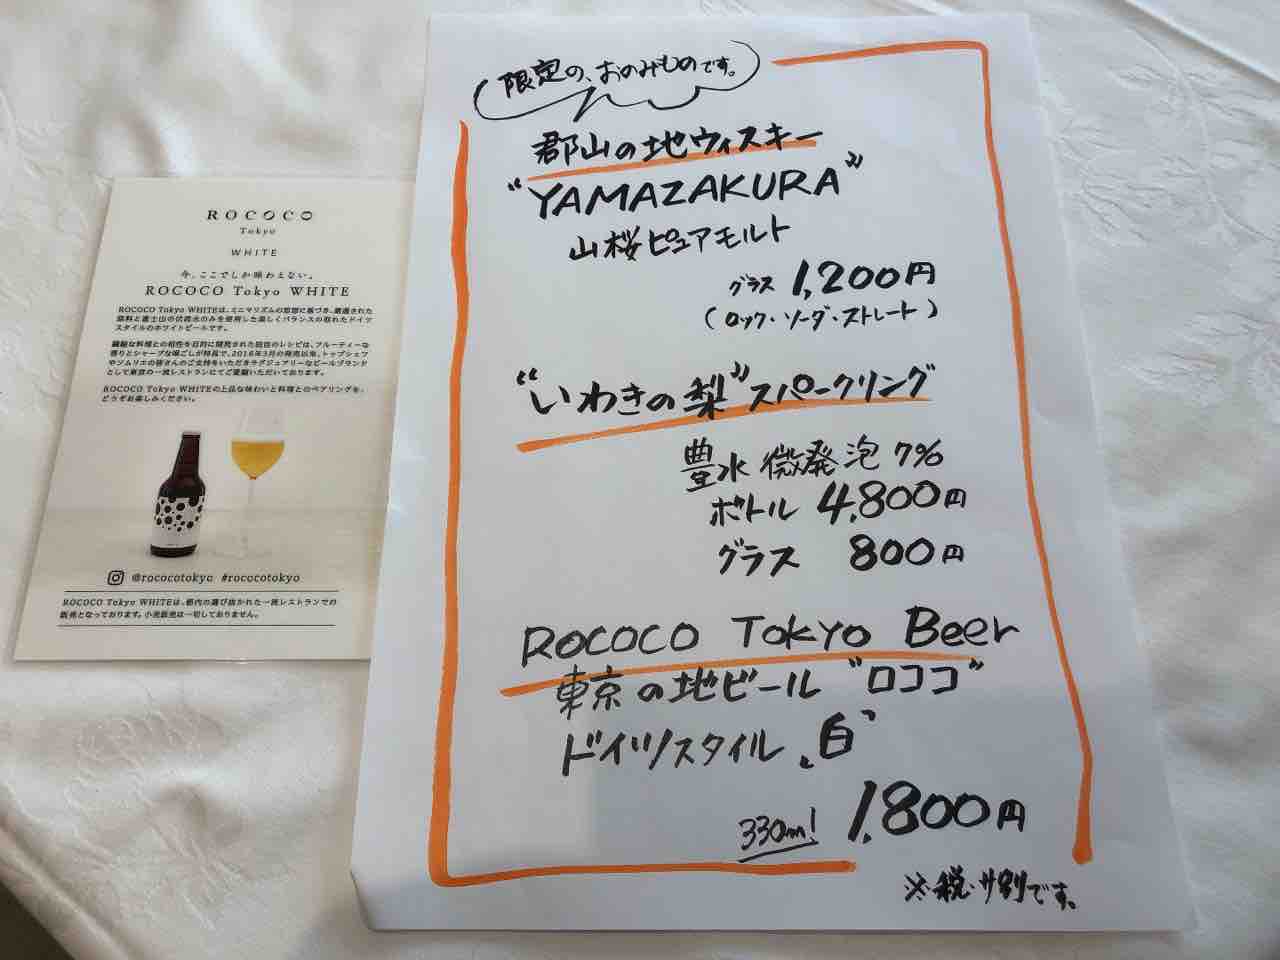 ROCOCO
Tokyo
WHITE
今、ここでしか味わえない。
ROCOCO Tokyo WHITE
ROCOCO Tokyo WHITEは、ミニマリズムの思想に基づき、厳選された
原料と富士山の伏流水のみを使用した楽しくバランスの取れたドイツ
スタイルのホワイトビールです。
繊細な料理との相性を目的に開発された独自のレシピは、フルーティーな
香りとシャープな喉ごしが特長で、2018年3月の発売以来、トップシェフ
やソムリエの皆さんのご支持をいただきラグジュアリーなビールブランド
として東京の一流レストランにてご愛顧いただいております。
ROCOCO Tokyo WHITEの上品な味わいと料理とのペアリングを、
どうぞお楽しみください。
@rococotokyo #rococotokyo
ROCOCO Tokyo WHITEは、都内の選び抜かれた一流レストランでの
販売となっております。小売販売は一切しておりません。
限定の、おのみものです。
郡山の地ウィスキー
“YAMAZAKURA”
山桜ピュアモルト
グラス 1,200円
(ロック・ソーダ・ストレート)
“いわきの梨”スパークリング
豊水 微発泡 7%
ボトル 4,800円
グラス 800円
ROCOCO Tokyo Beer
東京の地ビール “ロココ”
ドイツスタイル 〝白〟
330ml 1,800円
※税・サ別です。